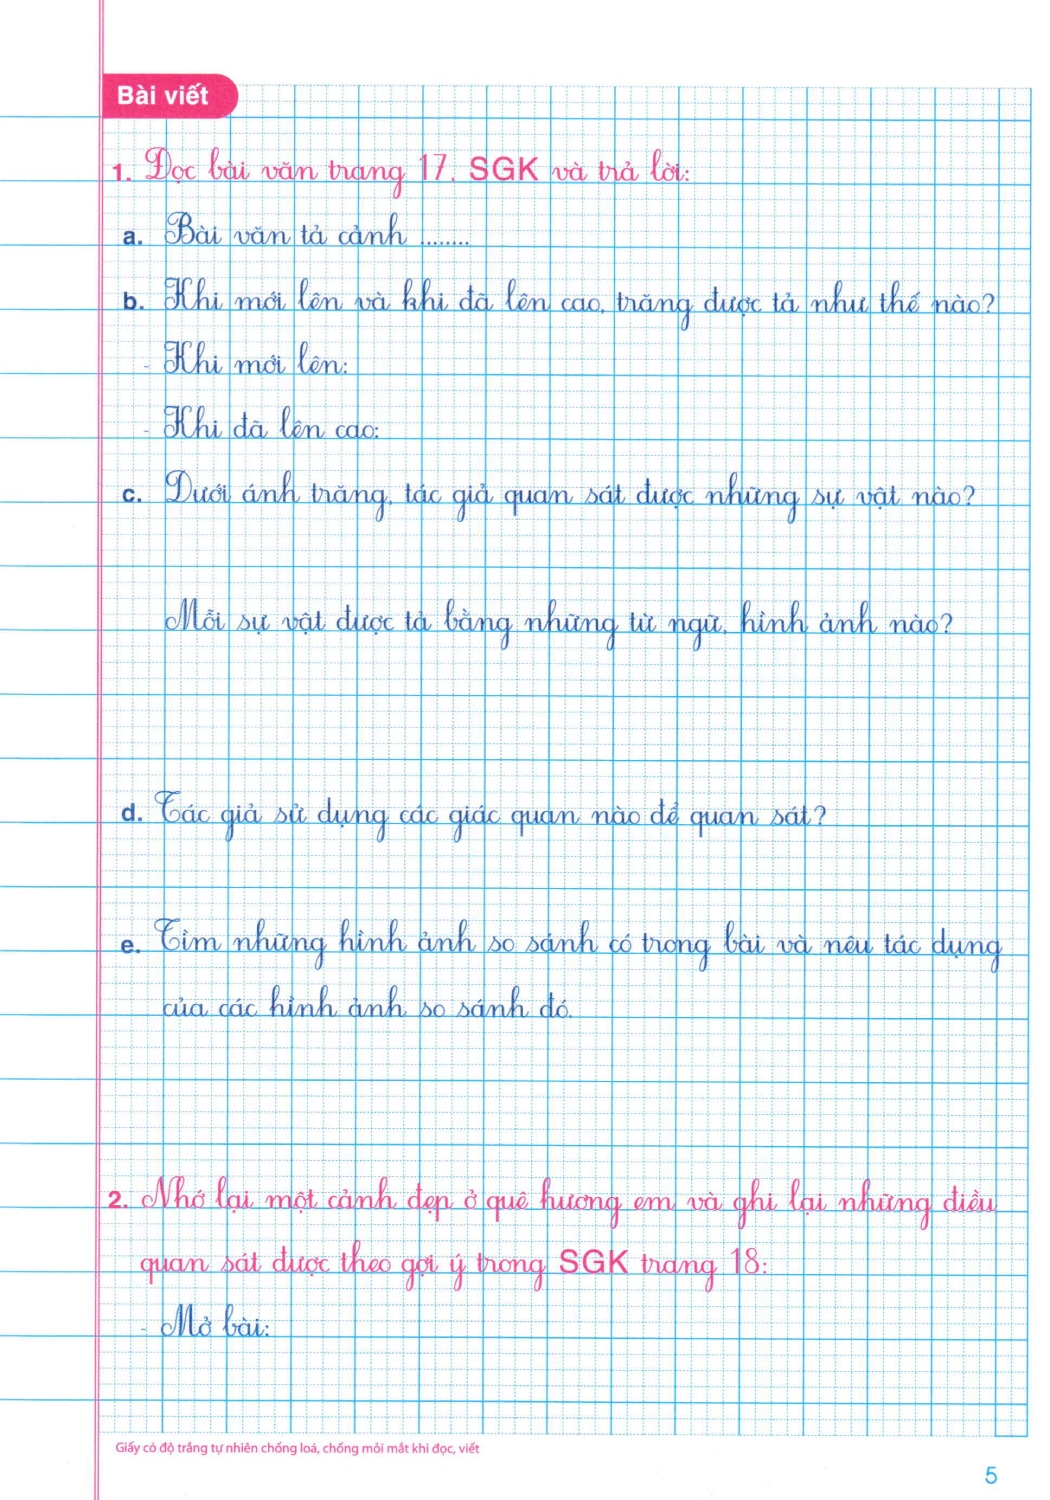 Bài viết
1. Đọc bài văn trang 17, SGK và trả lời:
a. Bài văn tả cảnh ........
b. Khi mới lên và khi đã lên cao, trăng được tả như thế nào?
- Khi mới lên:
- Khi đã lên cao:
c. Dưới ánh trăng, tác giả quan sát được những sự vật nào?
Mỗi sự vật được tả bằng những từ ngữ, hình ảnh nào?
d. Tác giả sử dụng các giác quan nào để quan sát?
e. Tìm những hình ảnh so sánh có trong bài và nêu tác dụng
của các hình ảnh so sánh đó.
2. Nhớ lại một cảnh đẹp ở quê hương em và ghi lại những điều
quan sát được theo gợi ý trong SGK trang 18:
- Mở bài:
Giấy có độ trắng tự nhiên chống loá, chống mỏi mắt khi đọc, viết
5